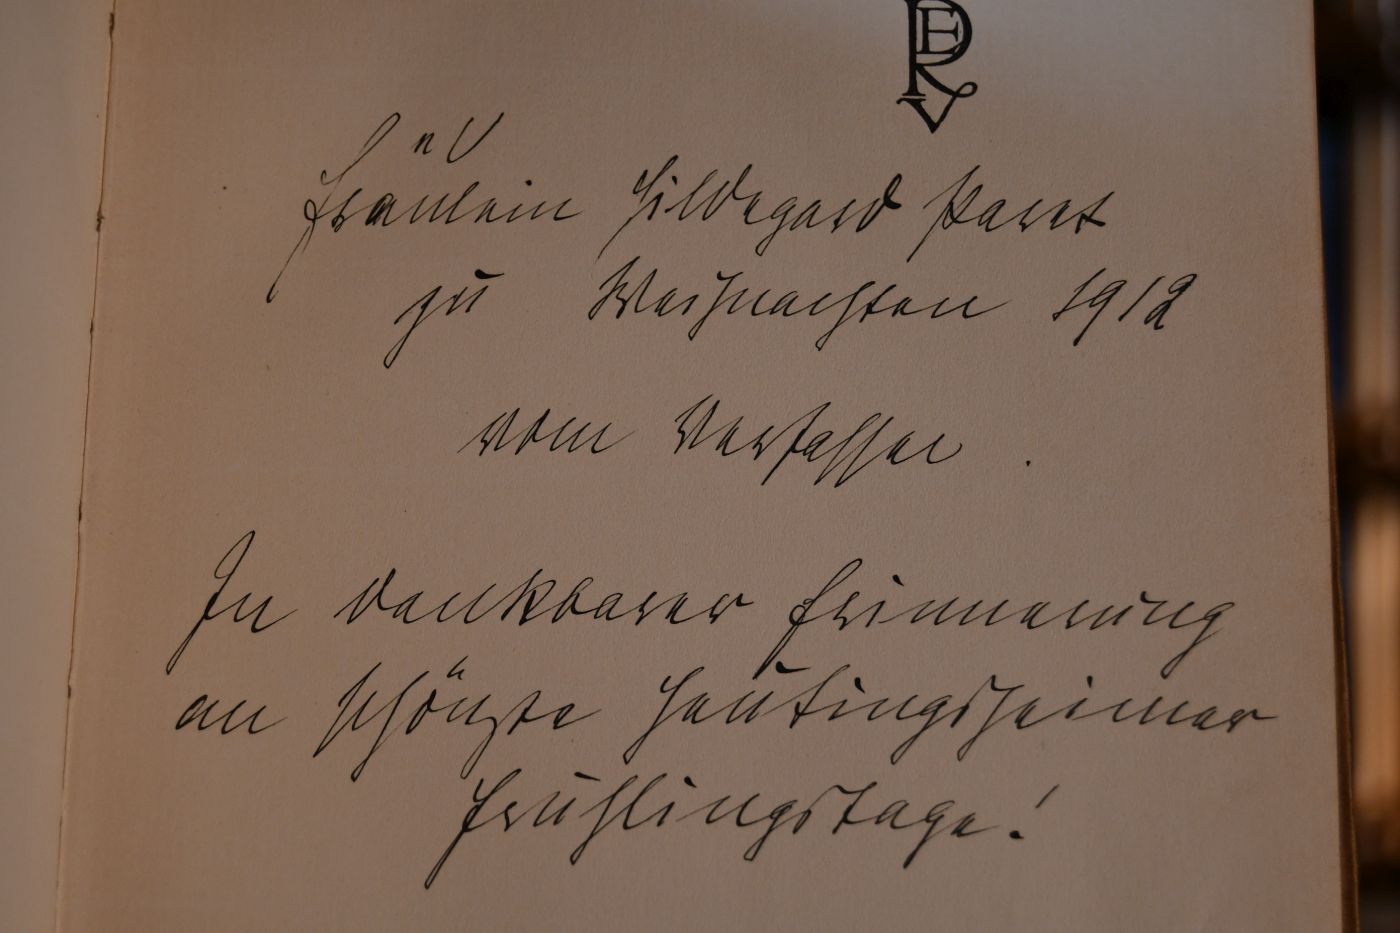 Fräulein Hildegard Paret
zu Weihnachten 1912
vom Verfasser.
In dankbarer Erinnerung
an schönste Heutingsheimer
Frühlingstage!